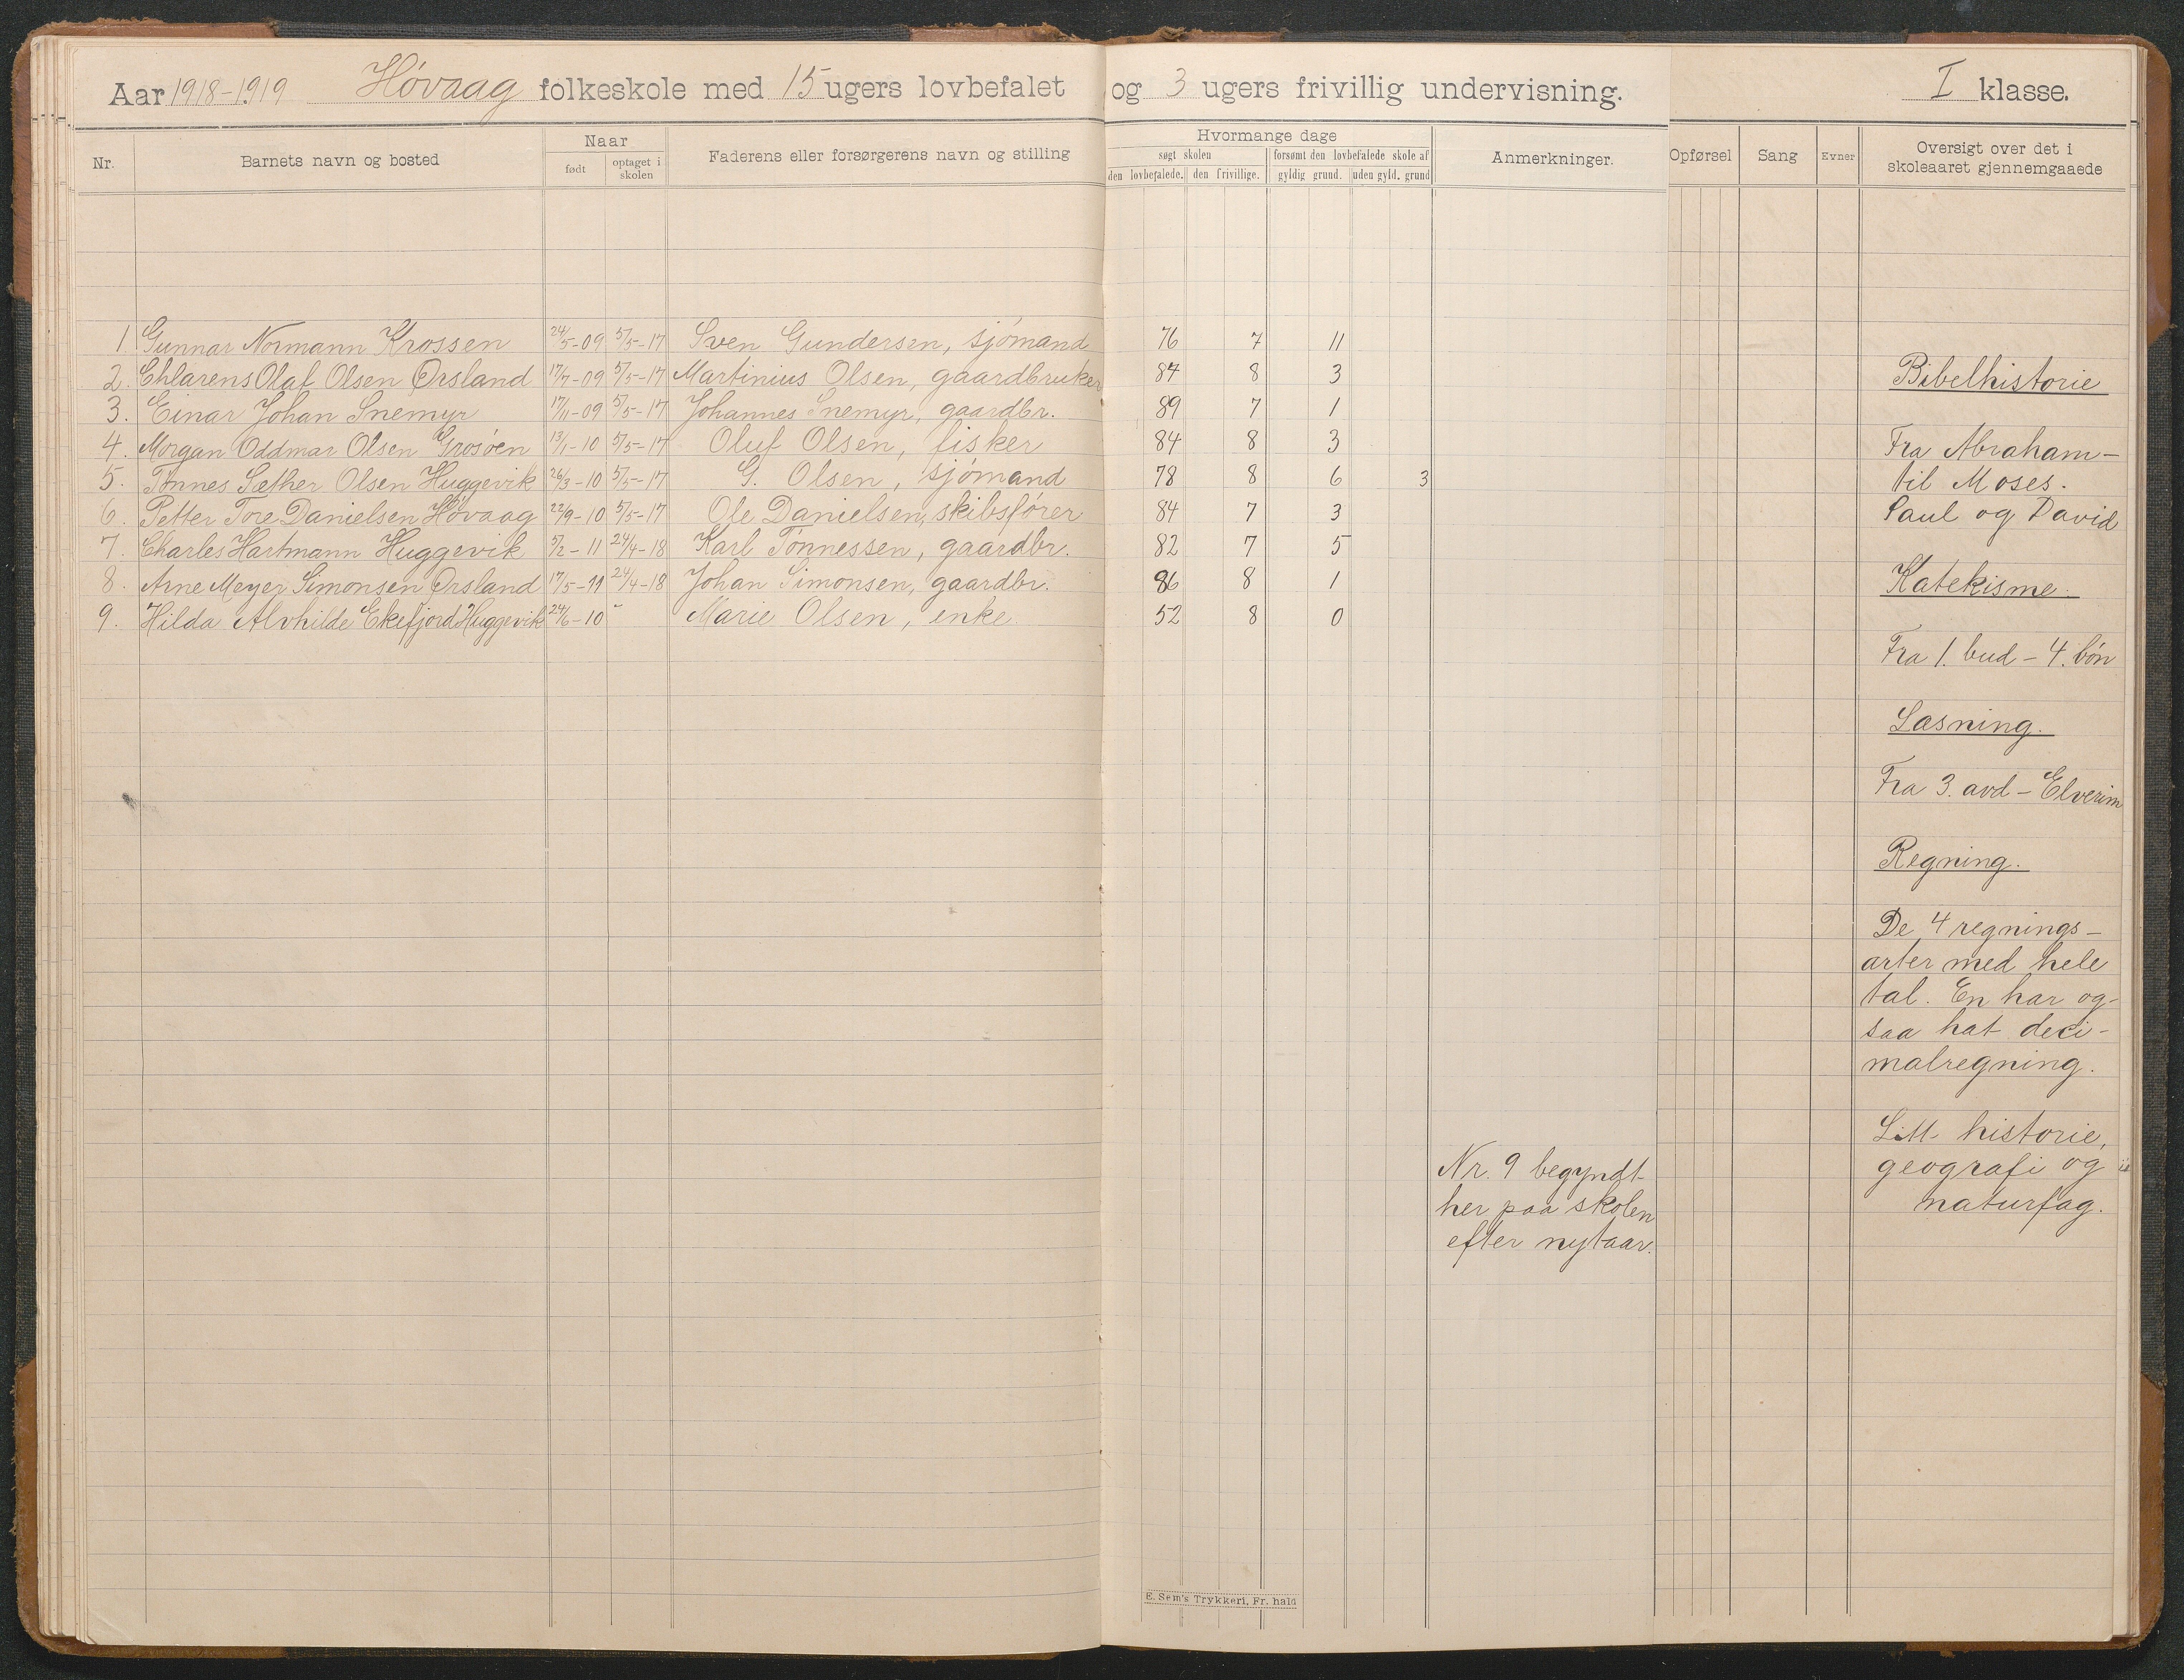 Aar 1918-1919 Høvaag folkeskole med 15 ugers lovbefalet og 3 ugers frivillig undervisning. I klasse.
Nr. Barnets navn og bosted Naar født optaget i skolen Faderens eller forsørgerens navn og stilling Hvormange dage søgt skolen den lovbefalede. den frivillige. forsømt den lovbefalede skole af gyldig grund. uden gyld. grund Anmerkninger. Opførsel Sang Evner Oversigt over det i skoleaaret gjennemgaaede
1. Gunnar Normann Krossen 24/5-09 5/5-17 Sven Gundersen, sjømand 76 7 11
2. Chlarens Olaf Olsen Ørsland 17/7-09 5/5-17 Martinius Olsen, gaardbruker 84 8 3
3. Einar Johan Snemyr 17/11-09 5/5-17 Johannes Snemyr, gaardbr. 89 7 1
4. Morgan Oddmar Olsen Grosøen 13/1-10 5/5-17 Oluf Olsen, fisker 84 8 3
5. Tønnes Sæther Olsen Huggevik 26/3-10 5/5-17 G. Olsen, sjømand 78 8 6 3
6. Petter Tore Danielsen Høvaag 22/9-10 5/5-17 Ole Danielsen, skibsfører 84 7 3
7. Charles Hartmann Huggevik 5/2-11 24/4-18 Karl Tønnessen, gaardbr. 82 7 5
8. Arne Meyer Simonsen Ørsland 17/5-11 24/4-18 Johan Simonsen, gaardbr. 86 8 1
9. Hilda Alvhilde Ekefjord Huggevik 24/6-10 - Marie Olsen, enke 52 8 0
Nr. 9 begyndt
her paa skolen
efter nytaar.
Bibelhistorie
Fra Abraham-
til Moses.
Paul og David
Katekisme.
Fra 1. bud - 4. bøn
Læsning.
Fra 3. avd - Elverim
Regning.
De 4 regnings-
arter med hele
tal. En har og-
saa hat deci-
malregning.
Litt historie,
geografi og
naturfag.
E. Sem's Trykkeri, Fr. hald